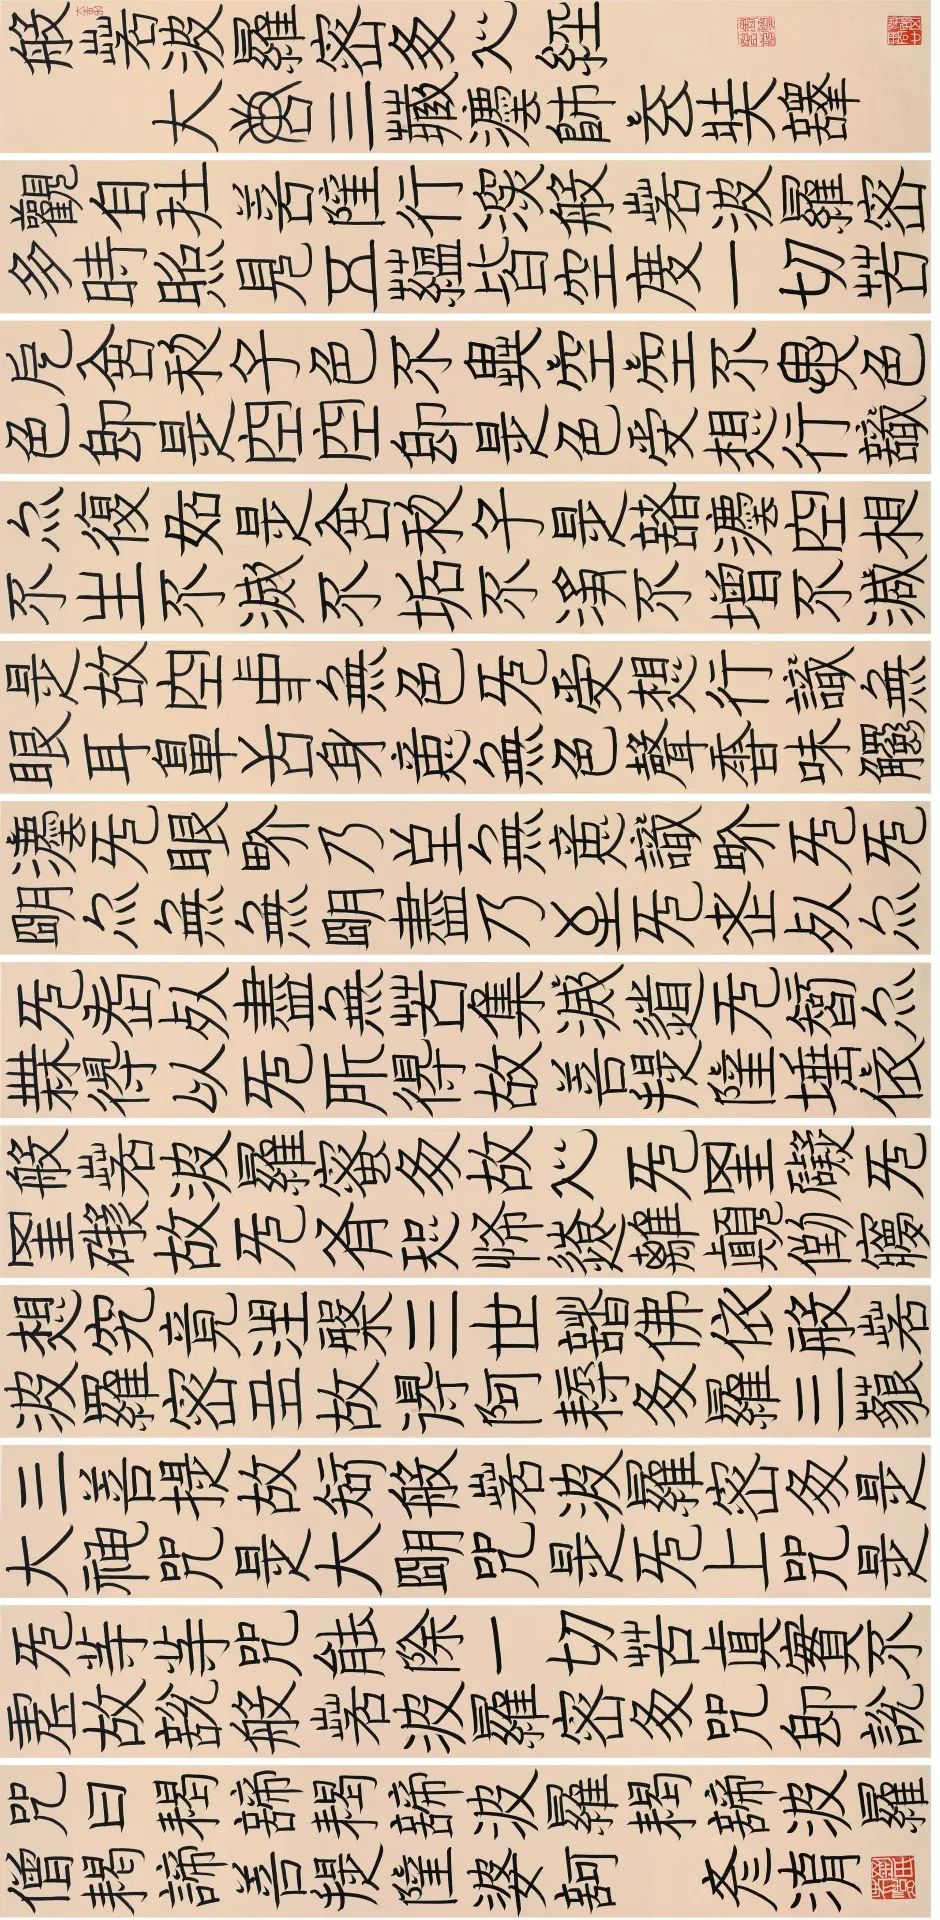 般若波羅密多心經
大唐三藏灋師玄奘譯
觀自在菩薩行深般若波羅密
多時照見五蘊皆空度一切苦
厄舍利子色不異空空不異色
色即是空空即是色受想行識
亦復如是舍利子是諸灋空相
不生不滅不垢不淨不增不減
是故空中無色无受想行識無
眼耳鼻舌身意無色聲香味觸
灋无眼界乃至無意識界无无
明亦無無明盡乃至无老死亦
无老死盡無苦集滅道无智亦
無得以无所得故菩提薩埵依
般若波羅蜜多故心无罣礙无
罣礙故无有恐怖遠離顛倒夢
想究竟涅槃三世諸佛依般若
波羅密多故得阿耨多羅三藐
三菩提故知般若波羅密多是
大神咒是大明咒是无上咒是
无等等咒能除一切苦真實不
虛故說般若波羅密多咒即說
咒曰揭諦揭諦波羅揭諦波羅
僧揭諦菩提薩婆訶